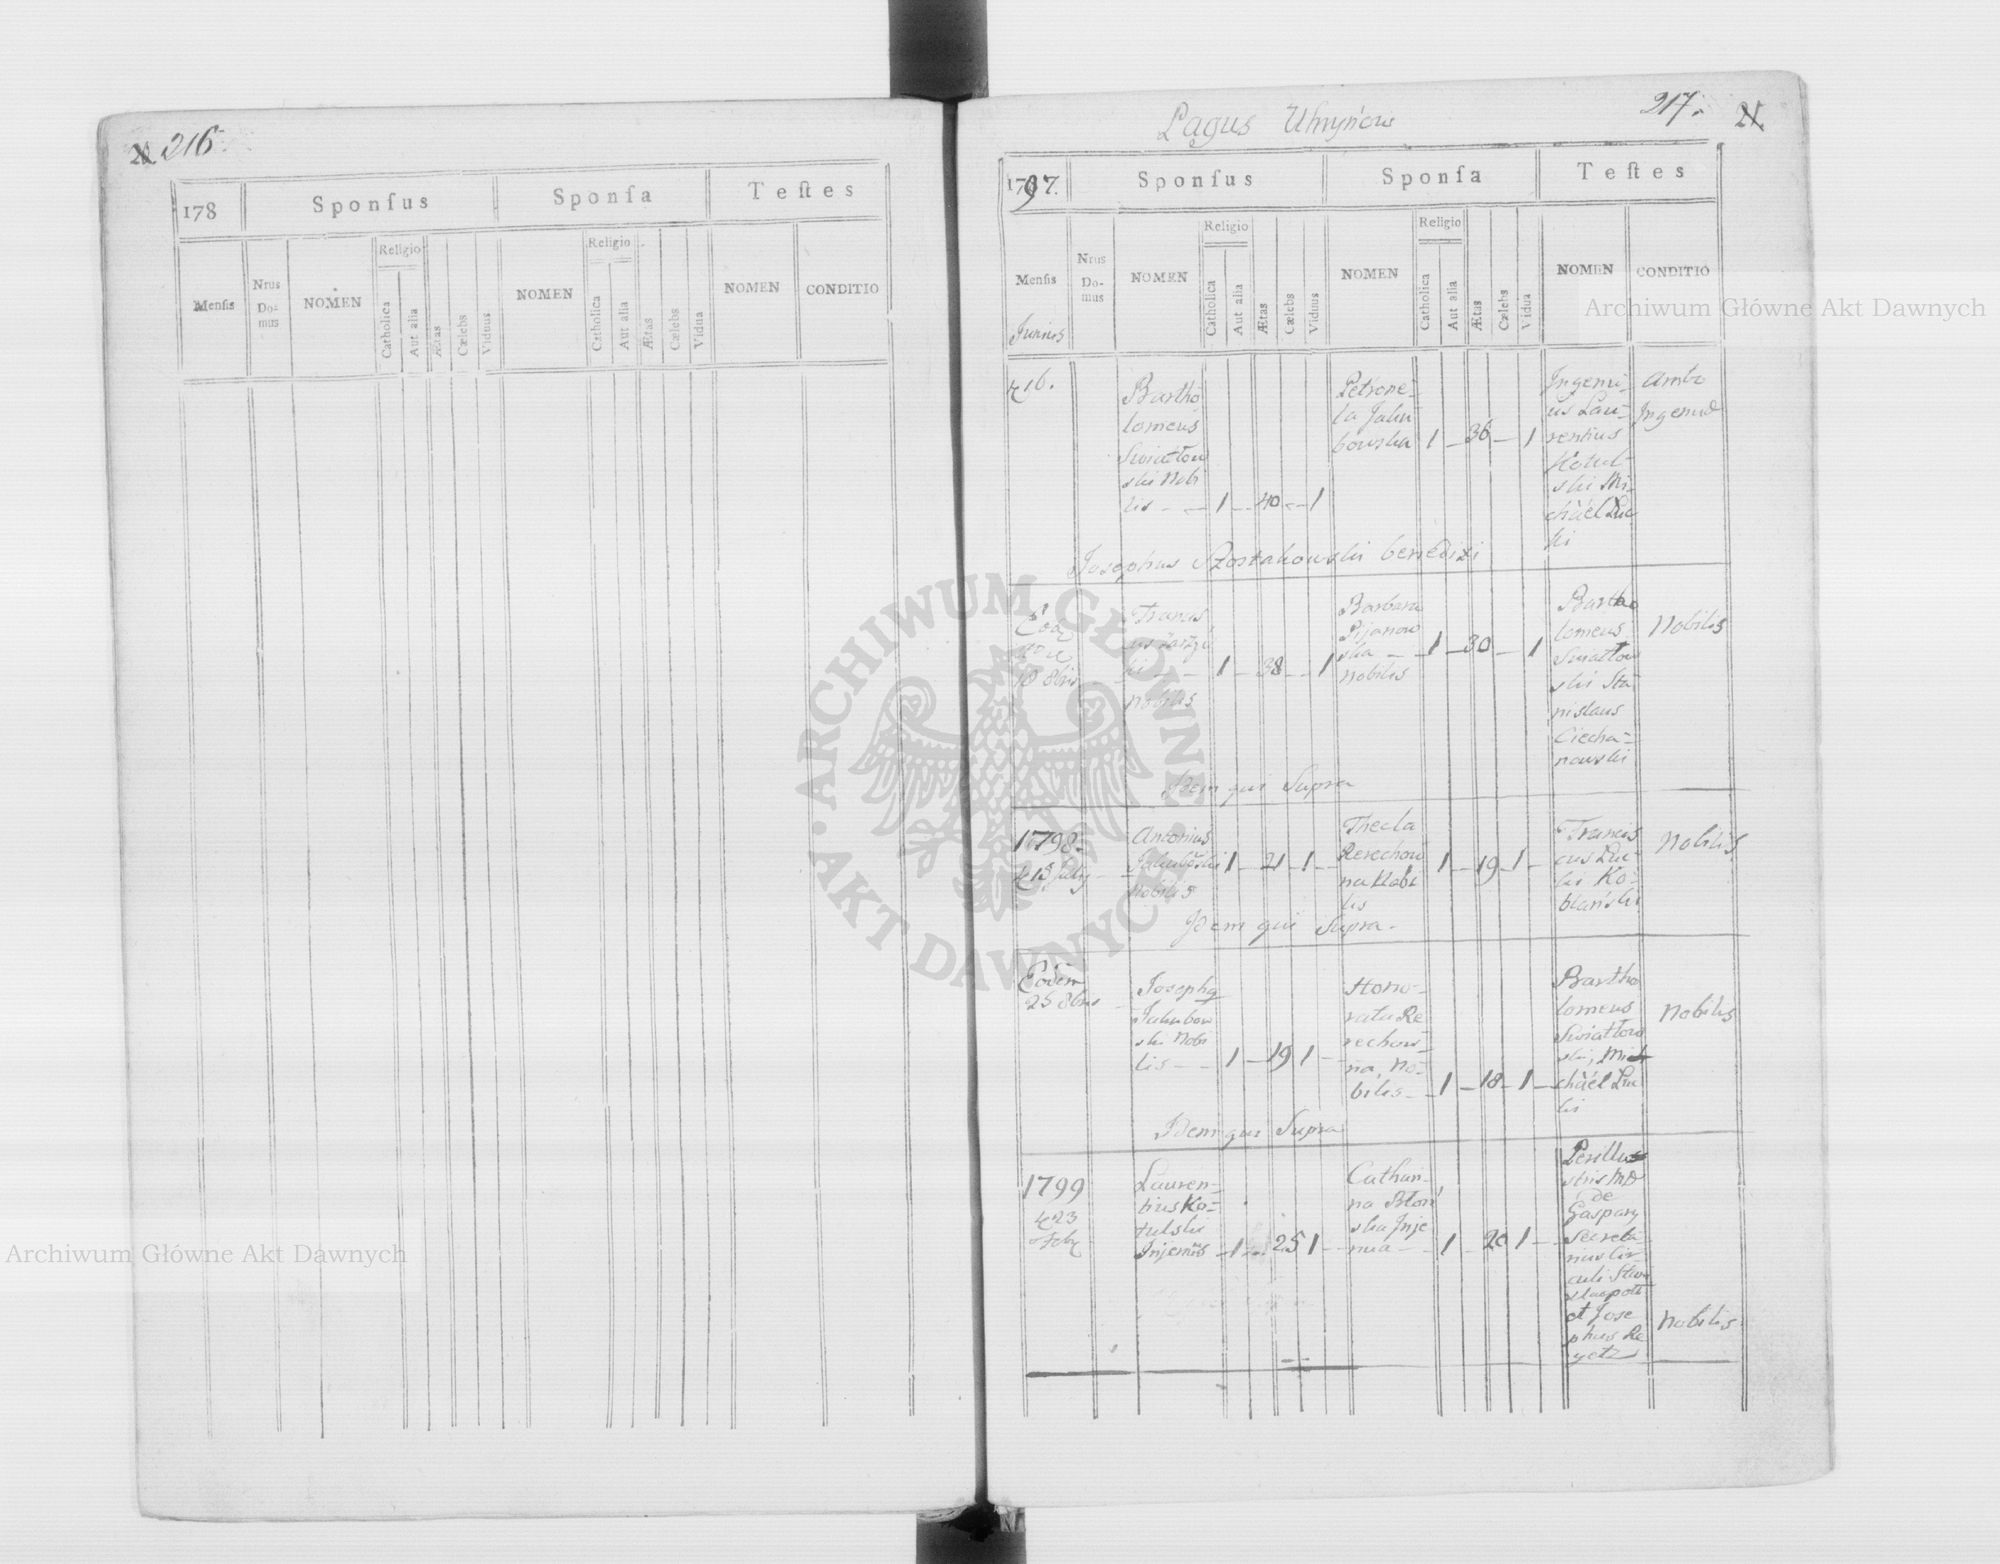 216.
178
Sponſus
Sponſa
Teſtes
Menſis
Nrus
Do-
mus
NOMEN
Religio
Catholica
Aut alia
Ætas
Cælebs
Viduus
NOMEN
Religio
Catholica
Aut alia
Ætas
Cælebs
Vidua
NOMEN
CONDITIO
Pagus Uhryńow
217.
21.
1797.
Sponſus
Sponſa
Teſtes
Menſis
Junius
Nrus
Do-
mus
NOMEN
Religio
Catholica
Aut alia
Ætas
Cælebs
Viduus
NOMEN
Religio
Catholica
Aut alia
Ætas
Cælebs
Vidua
NOMEN
CONDITIO
16.
Bartho
lomeus
Swiatłow
ski Nobi
lis - - 1 - 40 - - 1
Petronel-
la Jaku
bowska 1 - 36 - 1
Ingenu-
us Lau-
rentius
Kotul-
ski Mi-
chàél Łuc
ki
Ambo
Ingenui
Josephus Szostakowski benedixi
18 8bris
Francis
nobilis
1 - 38 - - 1
Barbara
Pijanow
ska - 1 - 30 - 1
nobilis
Bartho
lomeus
Swiatłow
ski Sta
nislaus
Ciecha-
nowski
Nobilis
Idem qui Supra
1798.
13 July
Antonius
nobilis
1 - 21 - 1 -
Thecla
Rerechow
na Nobi
lis
1 - 19 - 1 -
Francis
cus Łuc-
ki Ko-
blański
Nobilis
Idem qui Supra -
Eodem
25 8bris
Josephg
Jakubow
ski Nobi
lis - - 1 - 19 1 -
Hono-
rata Re
rechow-
na, No-
bilis - 1 - 18 - 1 -
Bartho
lomeus
Swiatłow
ski, Mi
chàél Łuc
ki
Nobilis
Idem qui Supra
1799
23
Feby
Lauren-
tius Ko-
tulski
Injenuus - 1 - 25 1 -
Cathari-
na Błoń
ska Inje
nua - 1 - 20 1 -
Perillus
stris MD
de
Gaspary
Secreta-
rius Cir-
culi
et Jose
phus Re
yetz
Nobilis
Archiwum Główne Akt Dawnych
ARCHIWUM GŁÓWNE • AKT DAWNYCH •
Archiwum Główne Akt Dawnych